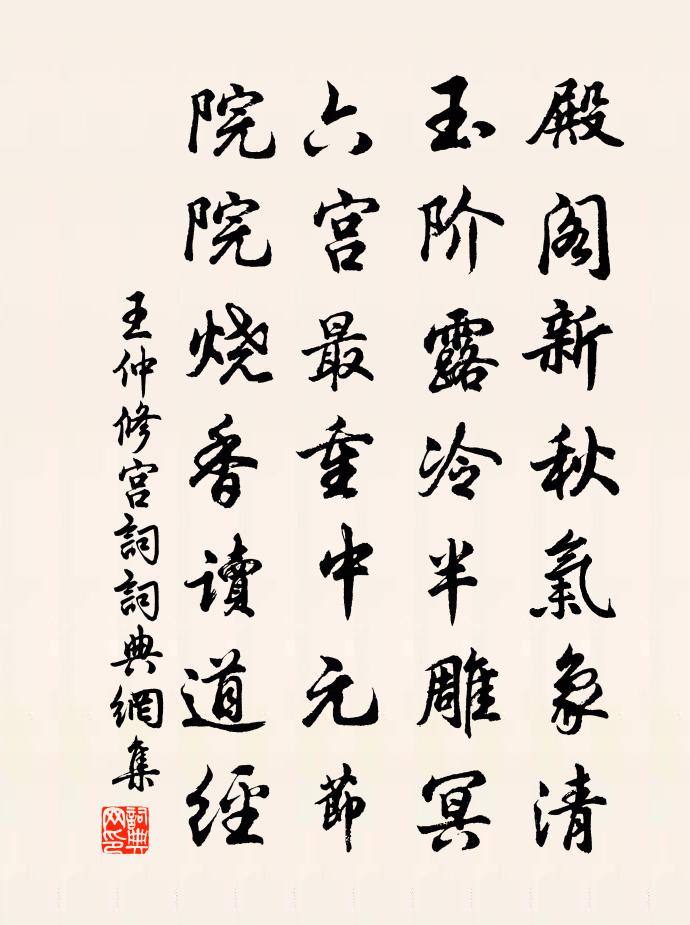 殿阁新秋氣象清
玉阶露冷半雕冥
六宫最重中元節
院院烧香讀道經
王仲修宫詞詞典網集
詞典网印